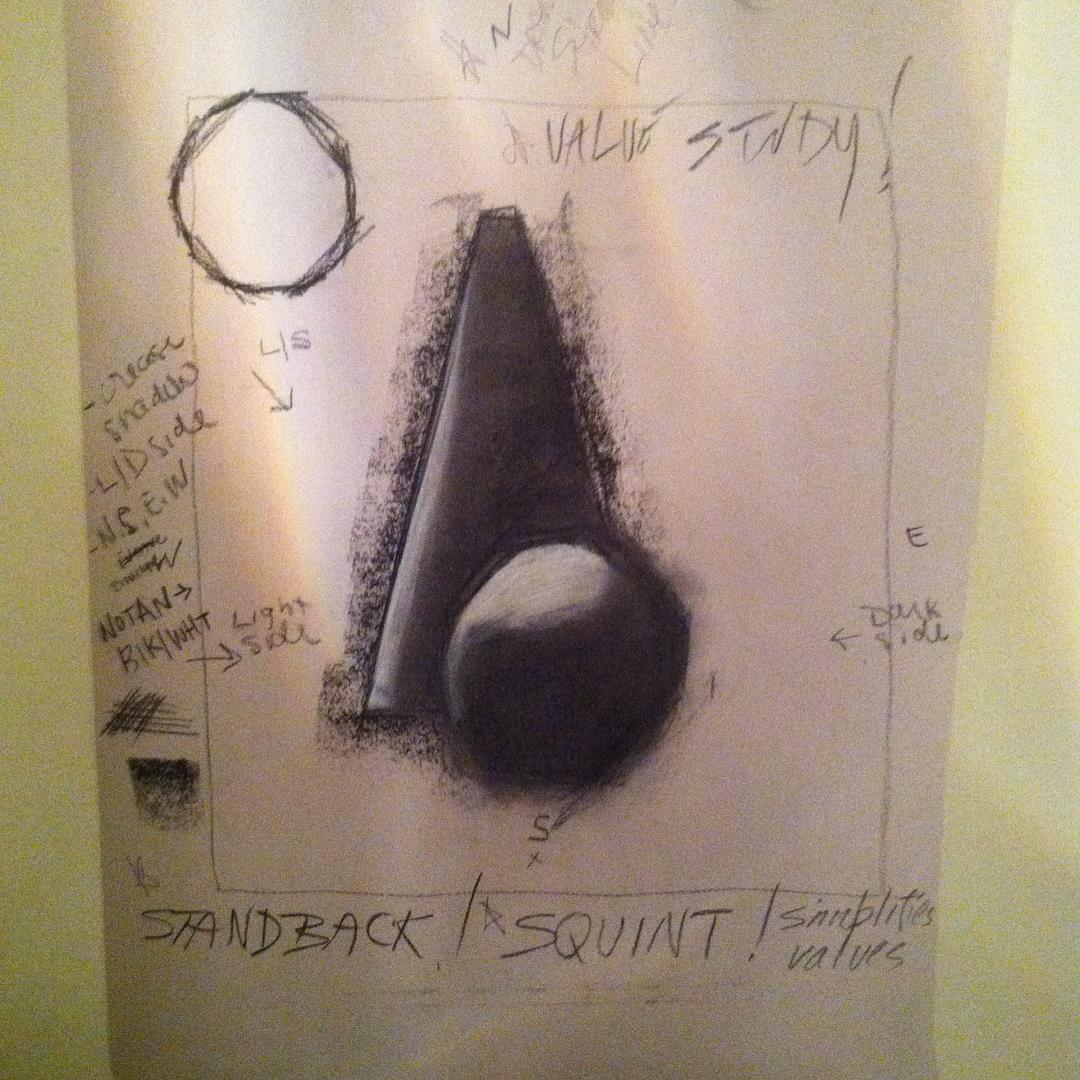 N
VALUE STUDY!
L/S
shadow
- L/D Side
- N.S.E.W
NOTAN →
BlK/WHT
Light
Side
E
Dark
Side
S
x
STANDBACK! SQUINT! simplifies
values